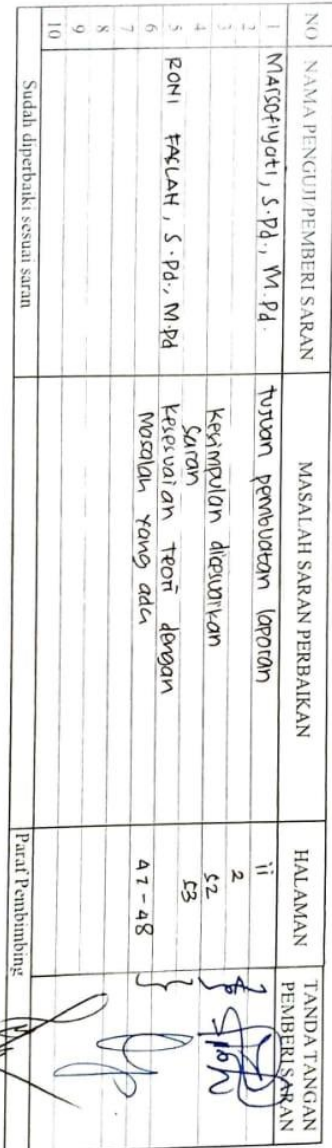 NO NAMA PENGUJI/PEMBERI SARAN MASALAH SARAN PERBAIKAN HALAMAN TANDA TANGAN PEMBERI SARAN
1 Marsofiyati, S.Pd., M.Pd. tujuan pembuatan laporan ii
2 2
3 kesimpulan disesuaikan 52
4 Saran 53
5 RONI FASLAH, S.Pd., M.Pd kesesuaian teori dengan
6 Masalah yang ada 47 - 48
7
8
9
10
Sudah diperbaiki sesuai saran Paraf Pembimbing